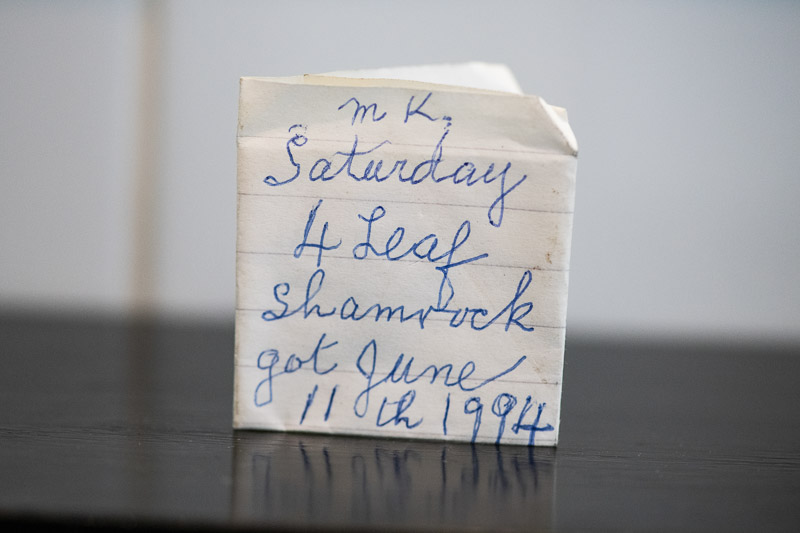 m K.
Saturday
4 Leaf
Shamrock
got June
11 th 1994